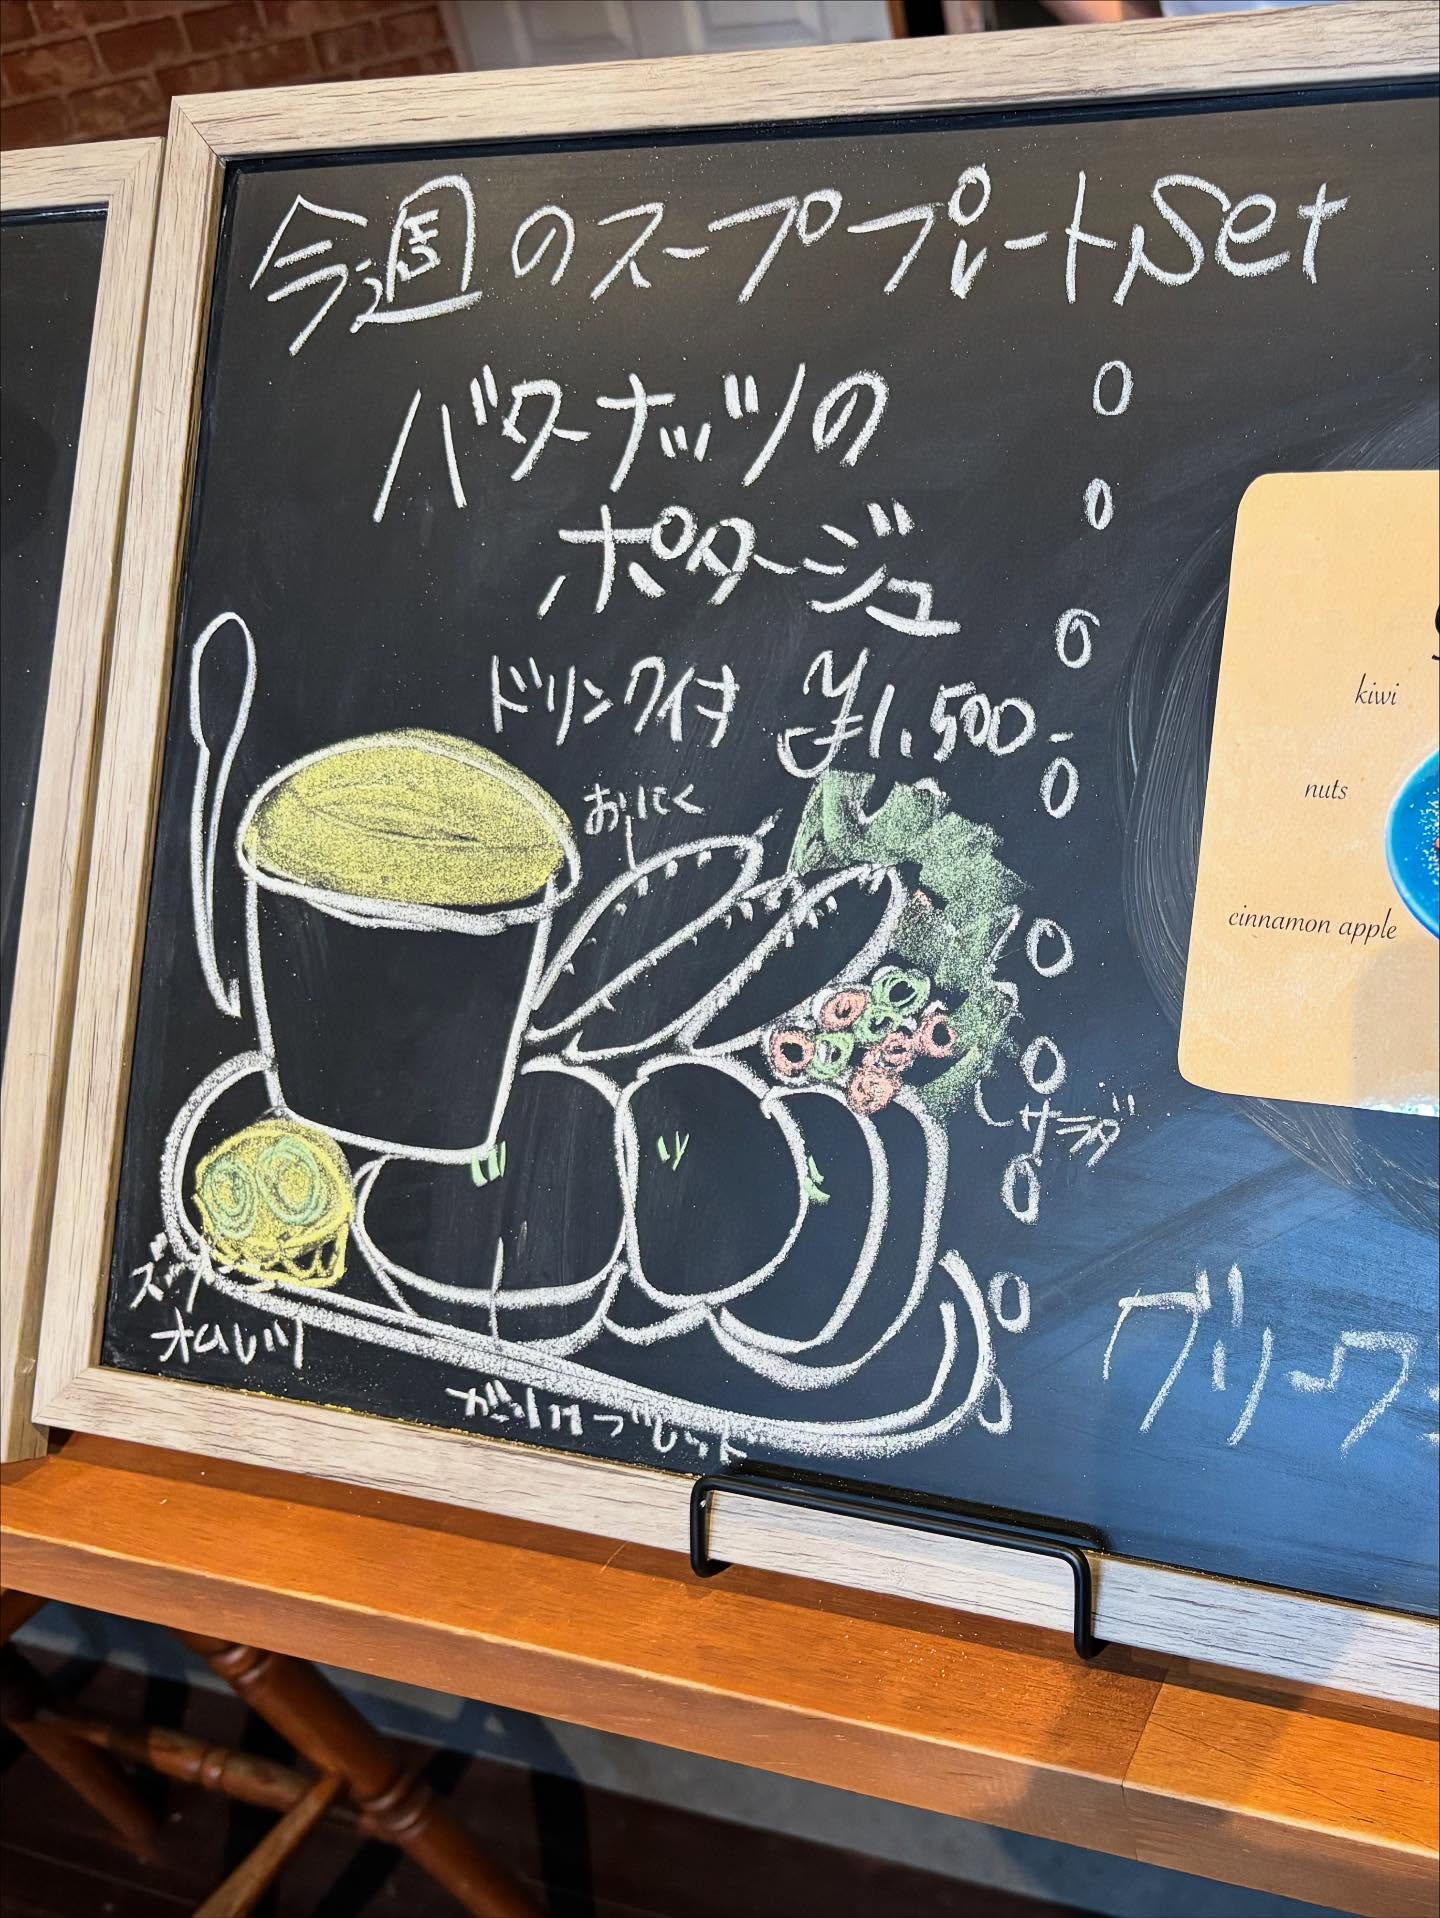 今週のスーププレートSet
バターナッツの
ポタージュ
ドリンク付 ¥1,500-
おにく
サラダ
オムレツ
ガーリックブレッド
kiwi
nuts
cinnamon apple
グリーク